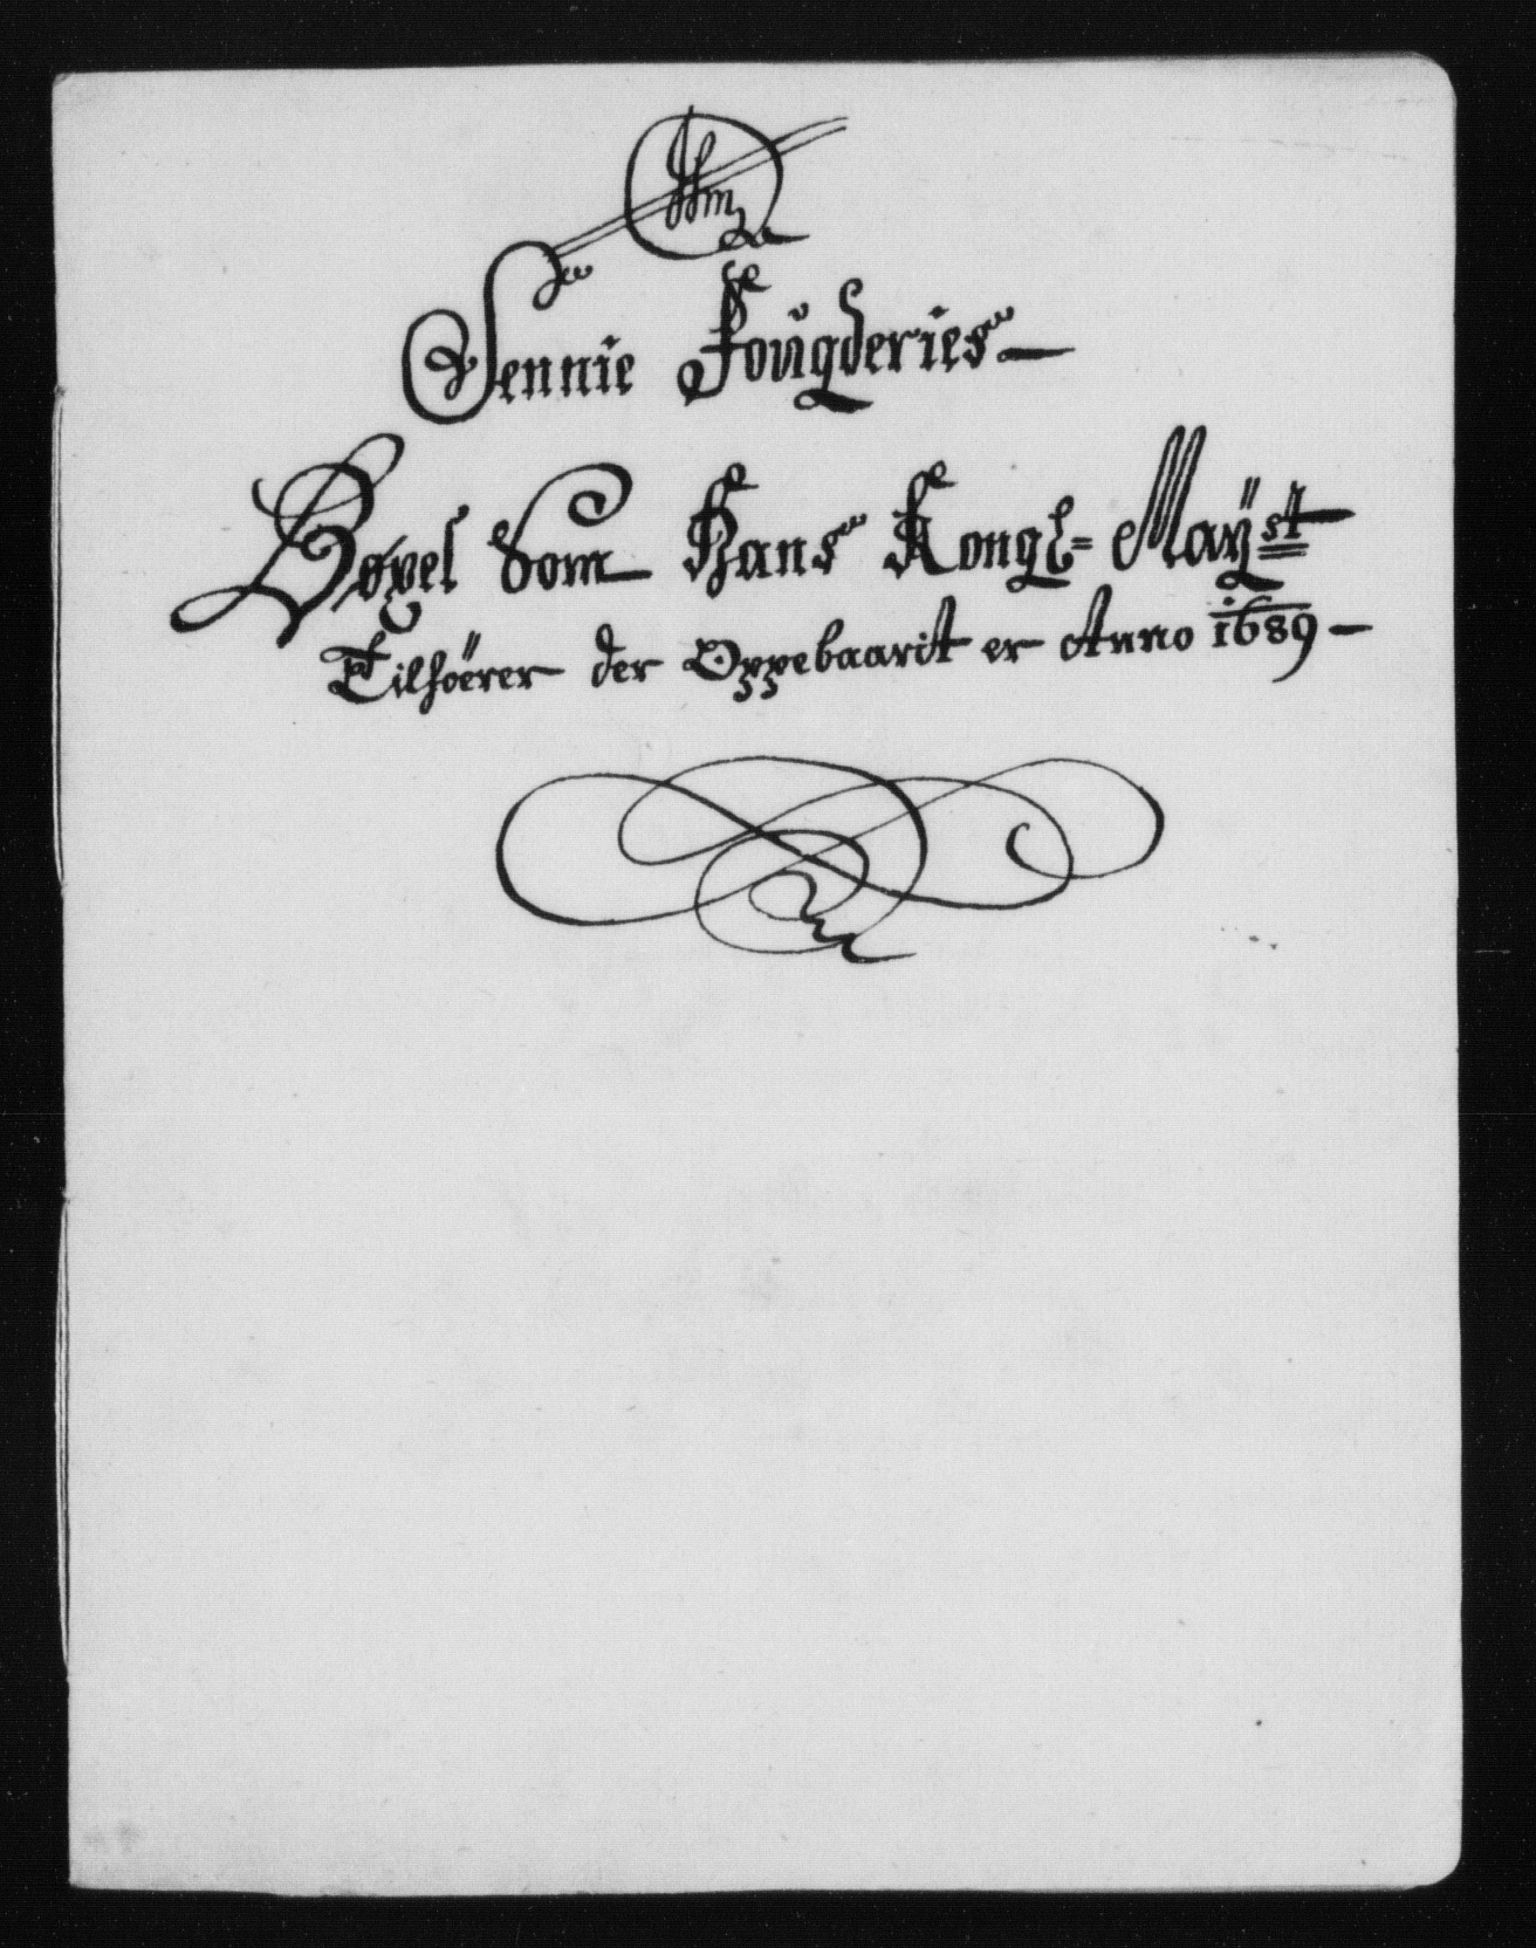 Sennie Foŭgderies
Bøxel Som Hans Kongl= Maÿst
Tilhöerer der Oppebaarit er Anno 1689